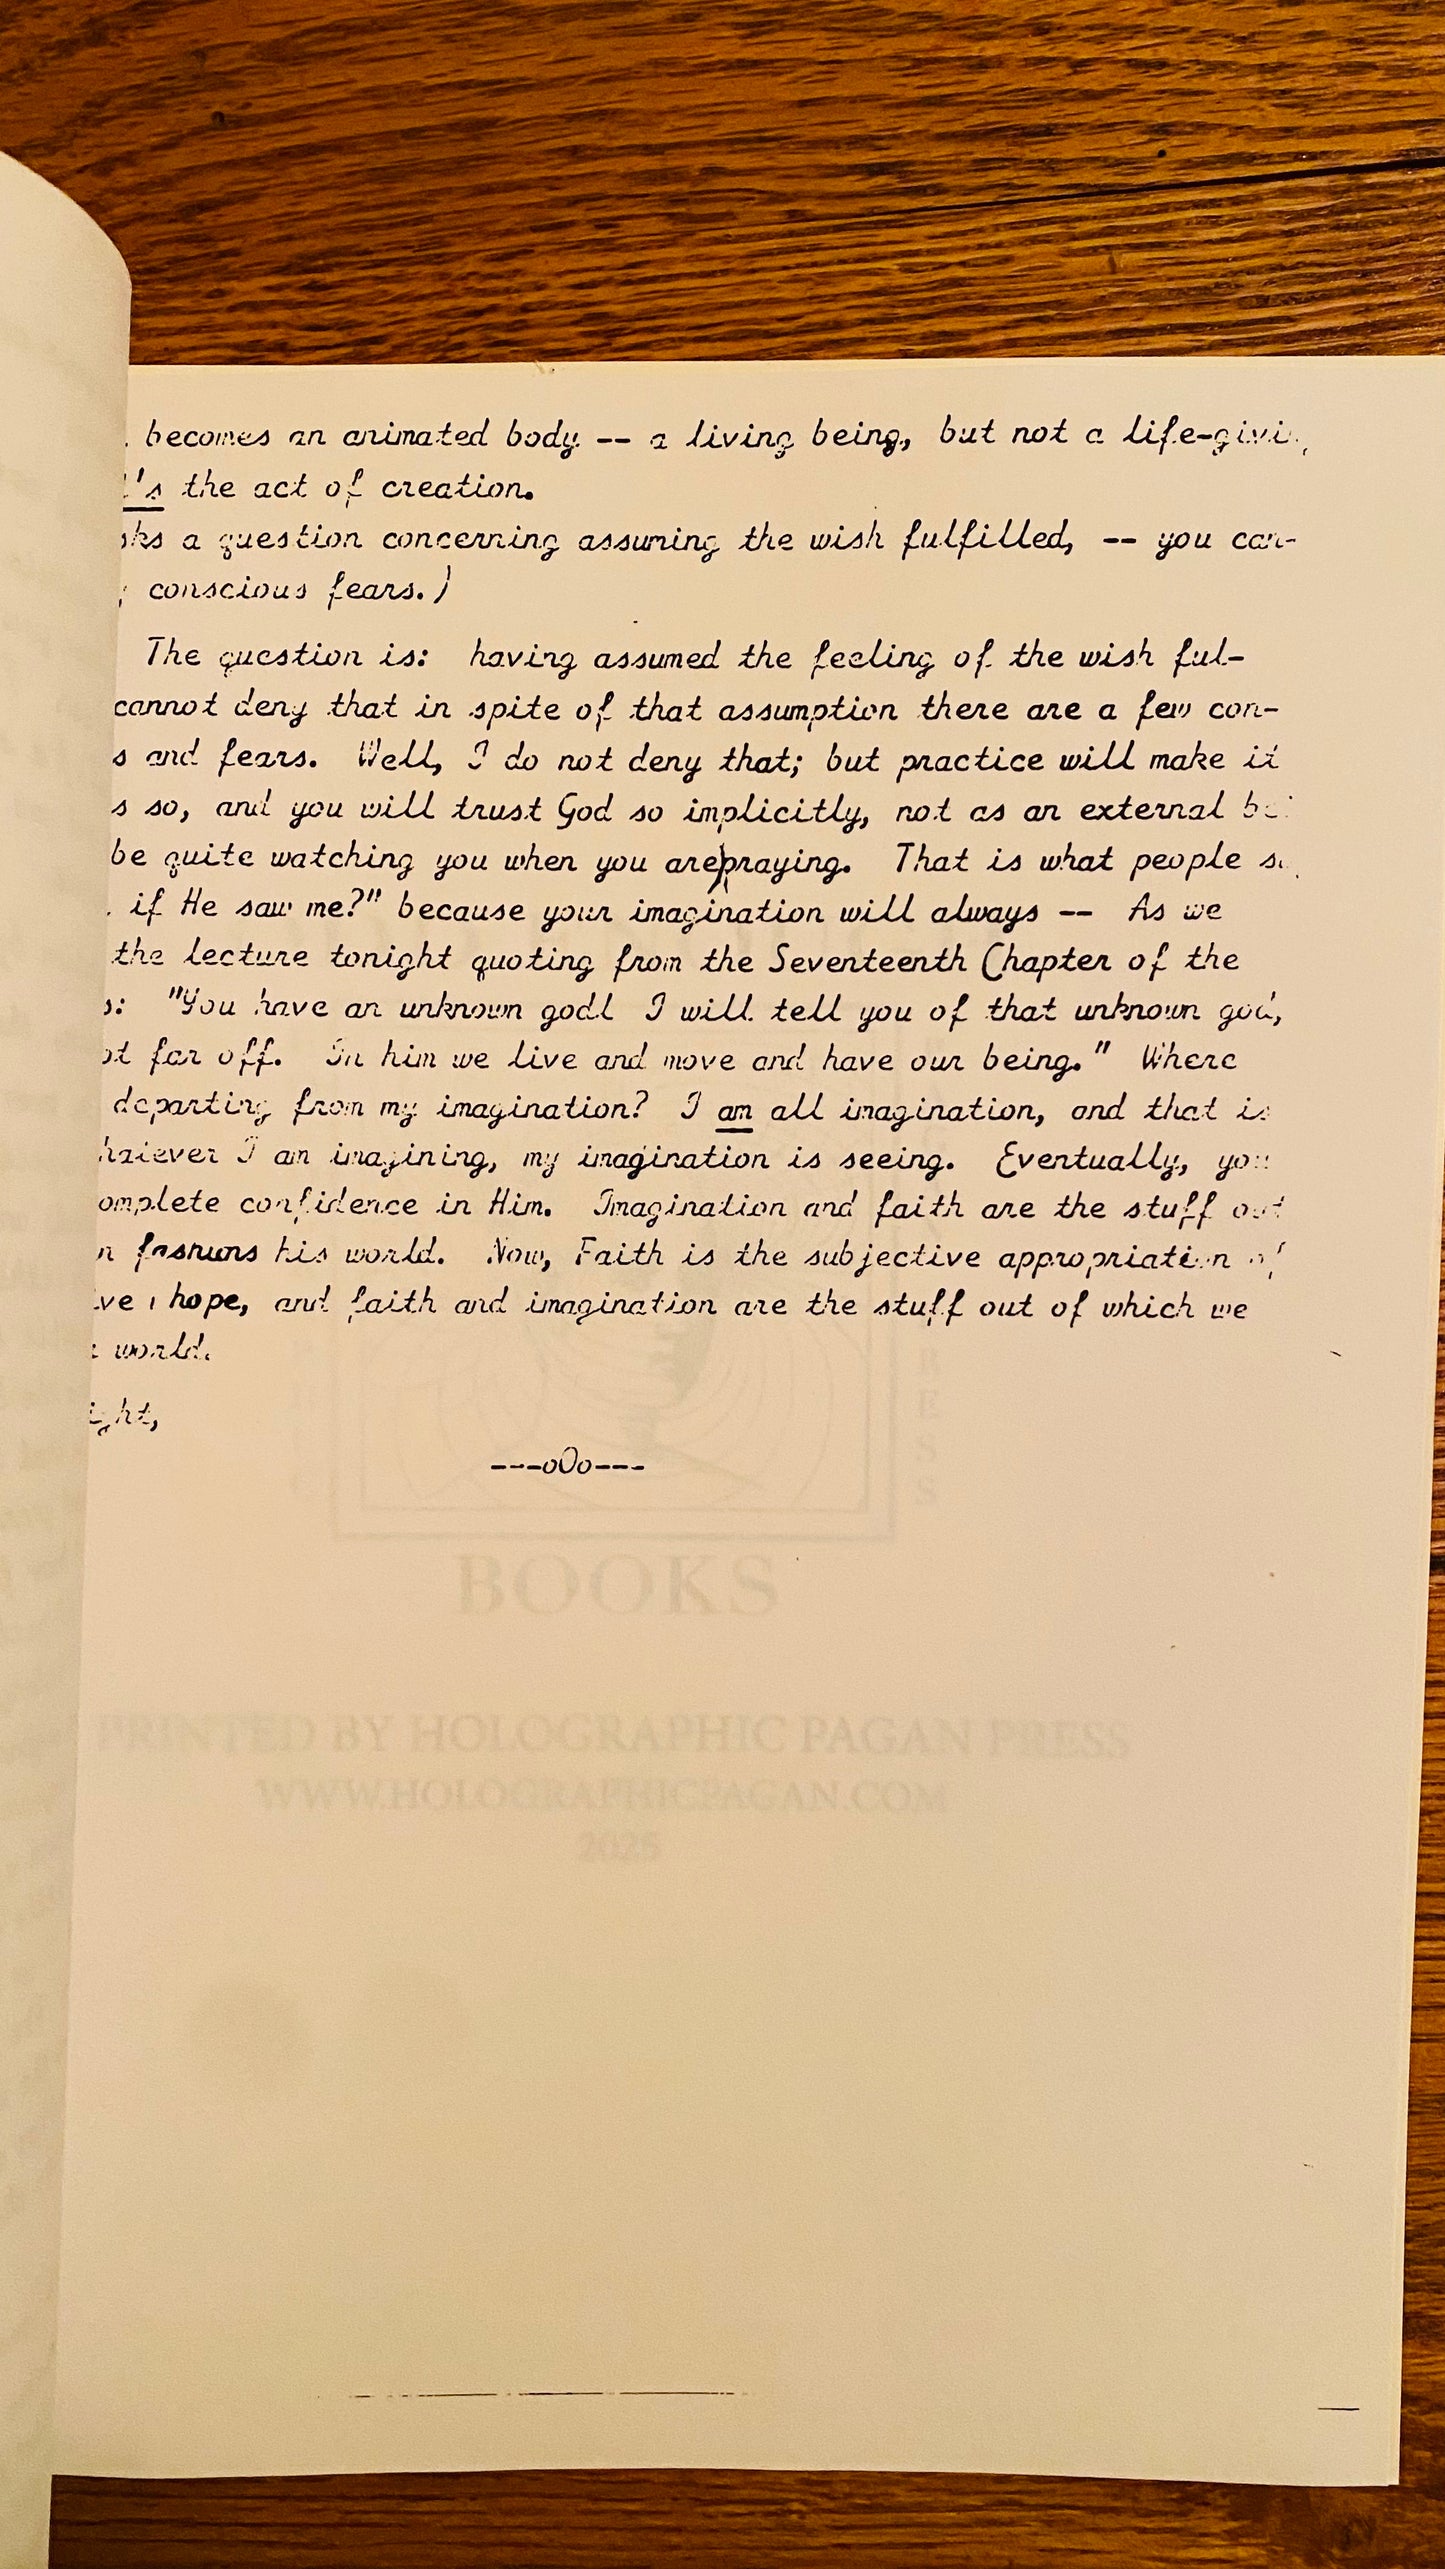 becomes an animated body -- a living being, but not a
the act of creation.
a question concerning assuming the wish fulfilled, -- you can-
conscious fears.)
The question is: having assumed the feeling of the wish ful-
cannot deny that in spite of that assumption there are a few con-
and fears. Well, I do not deny that; but practice will make it
so, and you will trust God so implicitly, not as an external
be quite watching you when you are praying. That is what people
if He saw me?" because your imagination will always -- As we
the lecture tonight quoting from the Seventeenth Chapter of the
"You have an unknown godl I will tell you of that unknown god,
far off. In him we live and move and have our being." Where
departing from my imagination? I am all imagination, and that is
I am imagining, my imagination is seeing. Eventually, you
complete confidence in Him. Imagination and faith are the stuff out
fashions his world. Now, Faith is the subjective appropriation of
hope, and faith and imagination are the stuff out of which we
world.
---oOo---
BOOKS
PRINTED BY HOLOGRAPHIC PAGAN PRESS
WWW.HOLOGRAPHICPAGAN.COM
2025